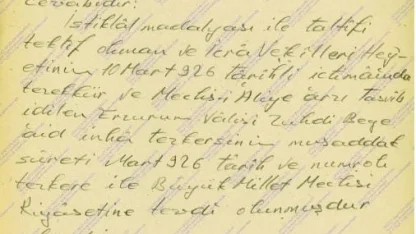 cevabıdır:
İstiklâl madalyası ile taltifi
teklif olunan ve İcra Vekilleri Hey-
etinin 10 Mart 926 târihli ictimaında
tezekkür ve Meclis-i Âliye arzı tasvib
idilen Erzurum Valisi Zühdi Beye
aid inha tezkersinin musaddak
sûreti Mart 926 târih ve numrolu
tezkere ile Büyük Millet Meclisi
Riyâsetine tevdi olunmuşdur